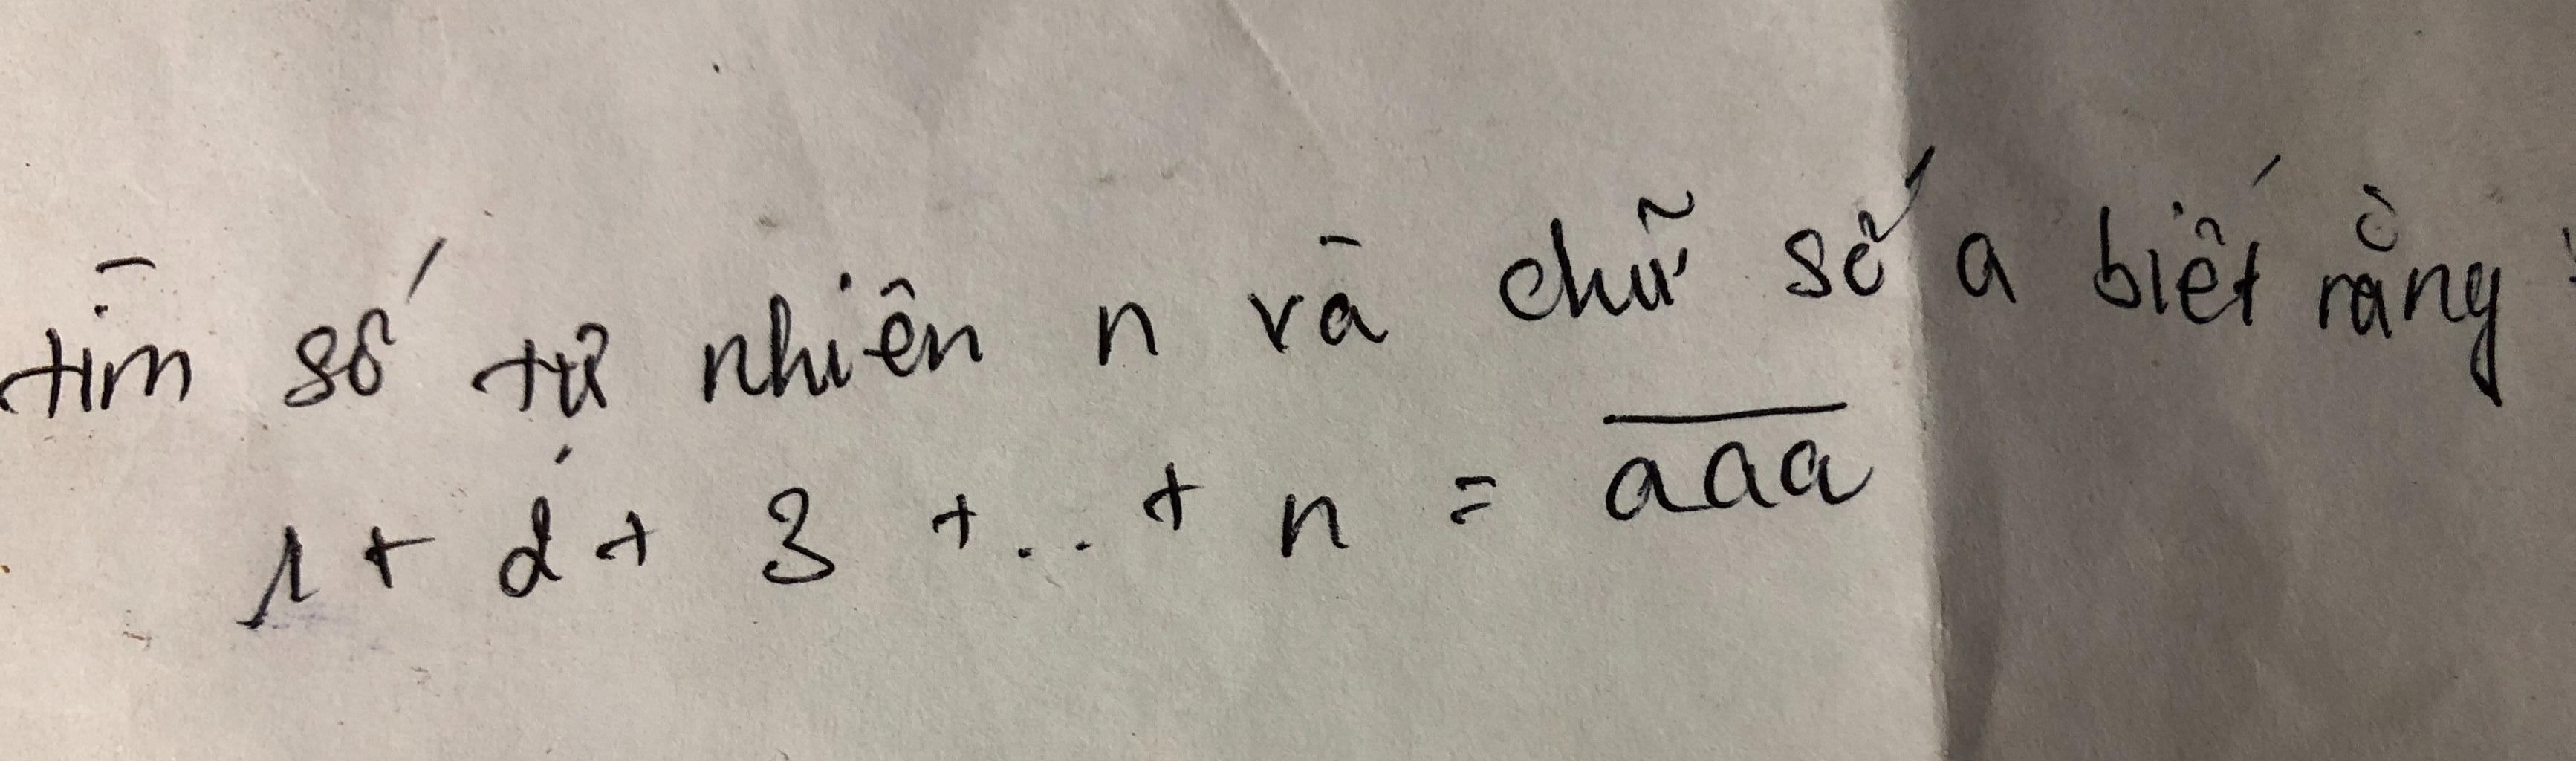 tìm số tự nhiên n và chữ số a biết rằng:
1 + 2 + 3 + ... + n = \overline{aaa}